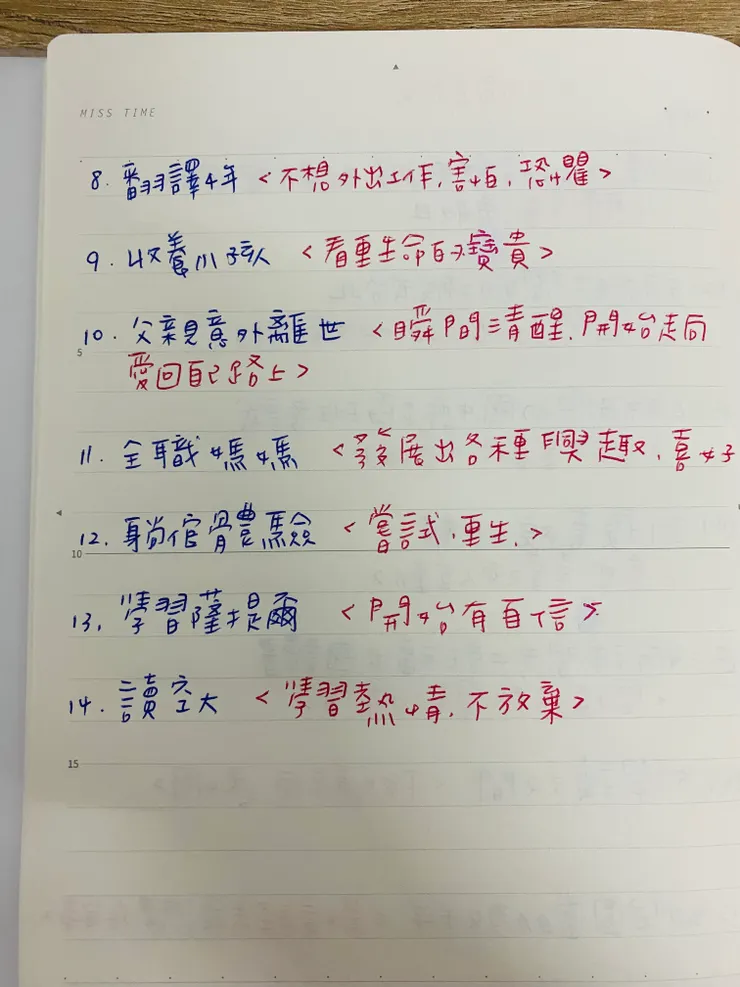 MISS TIME
8. 翻譯4年 <不想外出工作,害怕,恐懼>
9. 收養小孩 <看重生命的寶貴>
10. 父親意外離世 <瞬間清醒,開始走向
5
愛回自己路上>
11. 全職媽媽 <發展出各種興趣,喜好
12. 躺棺體驗 <嘗試,重生,>
10
13. 學習薩提爾 <開始有自信>
14. 讀空大 <學習熱情,不放棄>
15